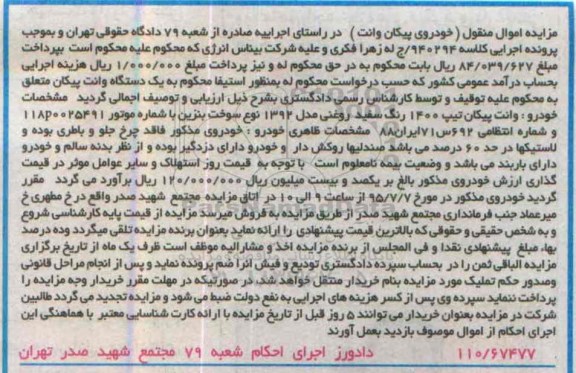 مزایده اموال منقول (خودروی پیکان وانت) در راستای اجراییه صادره از شعبه ۷۹ دادگاه حقوقی تهران و بموجب
پرونده اجرایی کلاسه ۹۴۰۲۹۴/ج له زهرا فکری و علیه شرکت بیناس انرژی که محکوم علیه محکوم است بپرداخت
مبلغ ۸۴/۰۳۹/۶۲۷ ریال بابت محکوم به در حق محکوم له و نیز پرداخت مبلغ ۱/۰۰۰/۰۰۰ ریال هزینه اجرایی
بحساب درآمد عمومی کشور که حسب درخواست محکوم له بمنظور استیفا محکوم به یک دستگاه وانت پیکان متعلق
به محکوم علیه توقیف و توسط کارشناس رسمی دادگستری بشرح ذیل ارزیابی و توصیف اجمالی گردید مشخصات
خودرو : وانت پیکان تیپ ۱۴۰۰ رنگ سفید روغنی مدل ۱۳۹۲ نوع سوخت بنزین با شماره موتور ۱۱۸p۰۰۲۵۴۹۱
و شماره انتظامی ۶۹۲س۷۱ایران۸۸ مشخصات ظاهری خودرو : خودروی مذکور فاقد چرخ جلو و باطری بوده و
لاستیکها در حد ۶۰ درصد می باشد صندلیها روکش دار و خودرو دارای دزدگیر بوده و از نظر بدنه سالم و خودرو
دارای باربند می باشد و وضعیت بیمه نامعلوم است با توجه به قیمت روز استهلاک و سایر عوامل موثر در قیمت
گذاری ارزش خودروی مذکور بالغ بر یکصد و بیست میلیون ریال ۱۲۰/۰۰۰/۰۰۰ ریال برآورد می گردد مقرر
گردید خودروی مذکور در مورخ ۹۵/۷/۷ از ساعت ۹ الی ۱۰ در اتاق مزایده مجتمع شهید صدر واقع در خ مطهری خ
میرعماد جنب فرمانداری مجتمع شهید صدر از طریق مزایده به فروش میرسد مزایده از قیمت پایه کارشناسی شروع
و به شخص حقیقی و حقوقی که بالاترین قیمت پیشنهادی را ارائه نماید بعنوان برنده مزایده تلقی میگردد وده درصد
بها، مبلغ پیشنهادی نقدا و فی المجلس از برنده مزایده اخذ و مشارالیه موظف است ظرف یک ماه از تاریخ برگزاری
مزایده الباقی ثمن را در بحساب سپرده دادگستری تودیع و فیش آنرا ضم پرونده نماید و پس از انجام مراحل قانونی
وصدور حکم تملیک مورد مزایده بنام خریدار منتقل خواهد شد. در صورتیکه در مهلت مقرر خریدار وجه مزایده را
پرداخت ننماید سپرده وی پس از کسر هزینه های اجرایی به نفع دولت ضبط می شود و مزایده تجدید می گردد طالبین
شرکت در مزایده بعنوان خریدار می توانند ۵ روز قبل از تاریخ مزایده با ارائه کارت شناسایی معتبر با هماهنگی این
اجرای احکام از اموال موصوف بازدید بعمل آورند
۱۱۰/۶۷۴۷۷ دادورز اجرای احکام شعبه ۷۹ مجتمع شهید صدر تهران